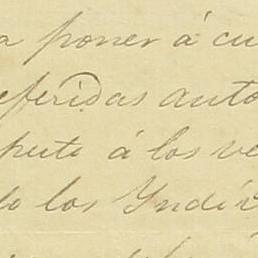 a poner á cu
eferidas auto
pecto á los ve
do los Yndí